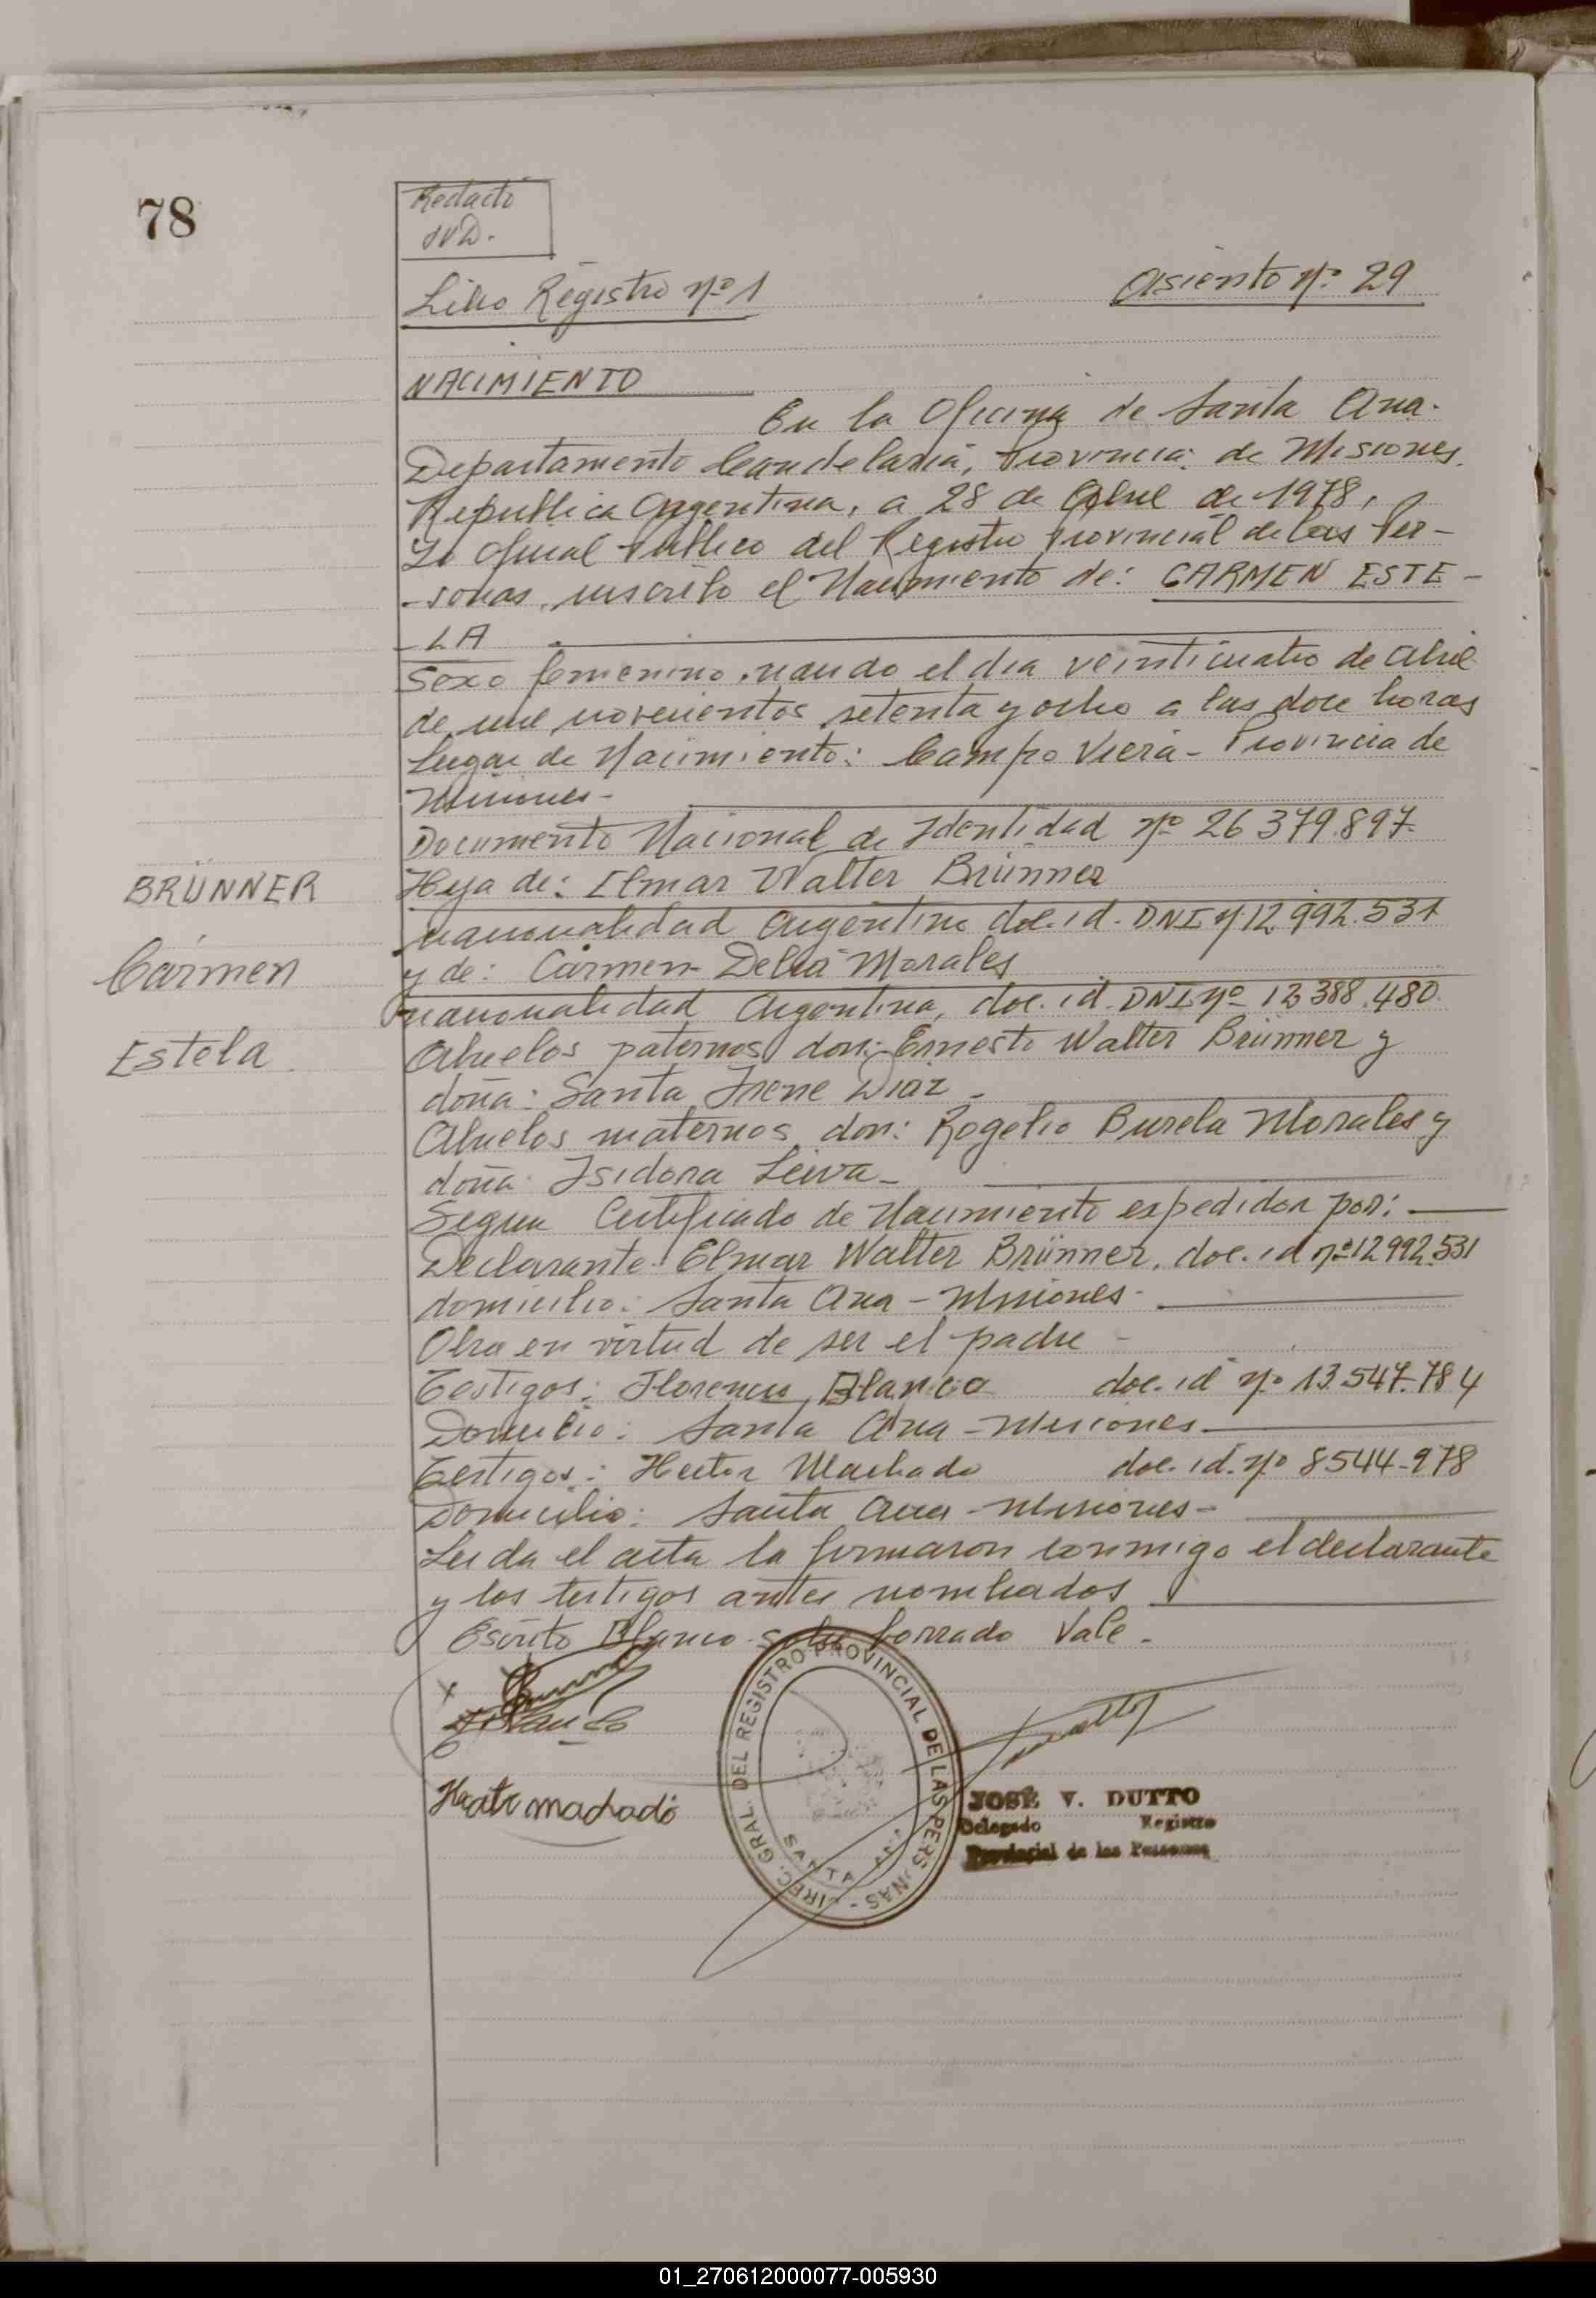 78
Redactó
JVD.
Libro Registro nº 1
Asiento nº 29
NACIMIENTO
En la Oficina de Santa Ana.
Departamento Candelaria, Provincia de Misiones.
Republica Argentina, a 28 de Abril de 1978,
Yo Oficial Publico del Registro Provincial de las Per-
-sonas, inscribo el Nacimiento de: CARMEN ESTE-
-LA
Sexo femenino, nacido el dia veinticuatro de abril
de mil novecientos setenta y ocho a las doce horas
Lugar de Nacimiento: Campo Viera - Provincia de
Misiones-
Documento Nacional de Identidad nº 26 379.897-
BRÜNNER
Carmen
Estela
Hija de: Elmar Walter Brünner
nacionalidad Argentina doc. id. DNI nº 12 992.531
y de: Carmen Delia Morales
nacionalidad Argentina, doc. id. DNI nº 12 388.480.
Abuelos paternos don: Ernesto Walter Brünner y
doña: Santa Irene Diaz -
Abuelos maternos don: Rogelio Burela Morales y
doña: Isidora Leiva -
Segun Certificado de Nacimiento expedidor por:
Declarante: Elmar Walter Brünner, doc. id nº 12 992.531
domicilio: Santa Ana - Misiones-
Obra en virtud de ser el padre -
Testigos: Florencio Blanco doc. id nº 13.547.784
Domicilio: Santa Ana - Misiones-
Testigos: Hector Machado doc. id. nº 8544-978
Domicilio: Santa Ana - Misiones-
Leida el acta la firmaron conmigo el declarante
y los testigos antes nombrados
Escrito Blanco sobre borrado Vale.
Blanco
Hector machado
DIREC. GRAL. DEL REGISTRO PROVINCIAL DE LAS PERSONAS -
SANTA ANA
JOSÉ V. DUTTO
Delegado Registro
Provincial de las Personas
01_270612000077-005930